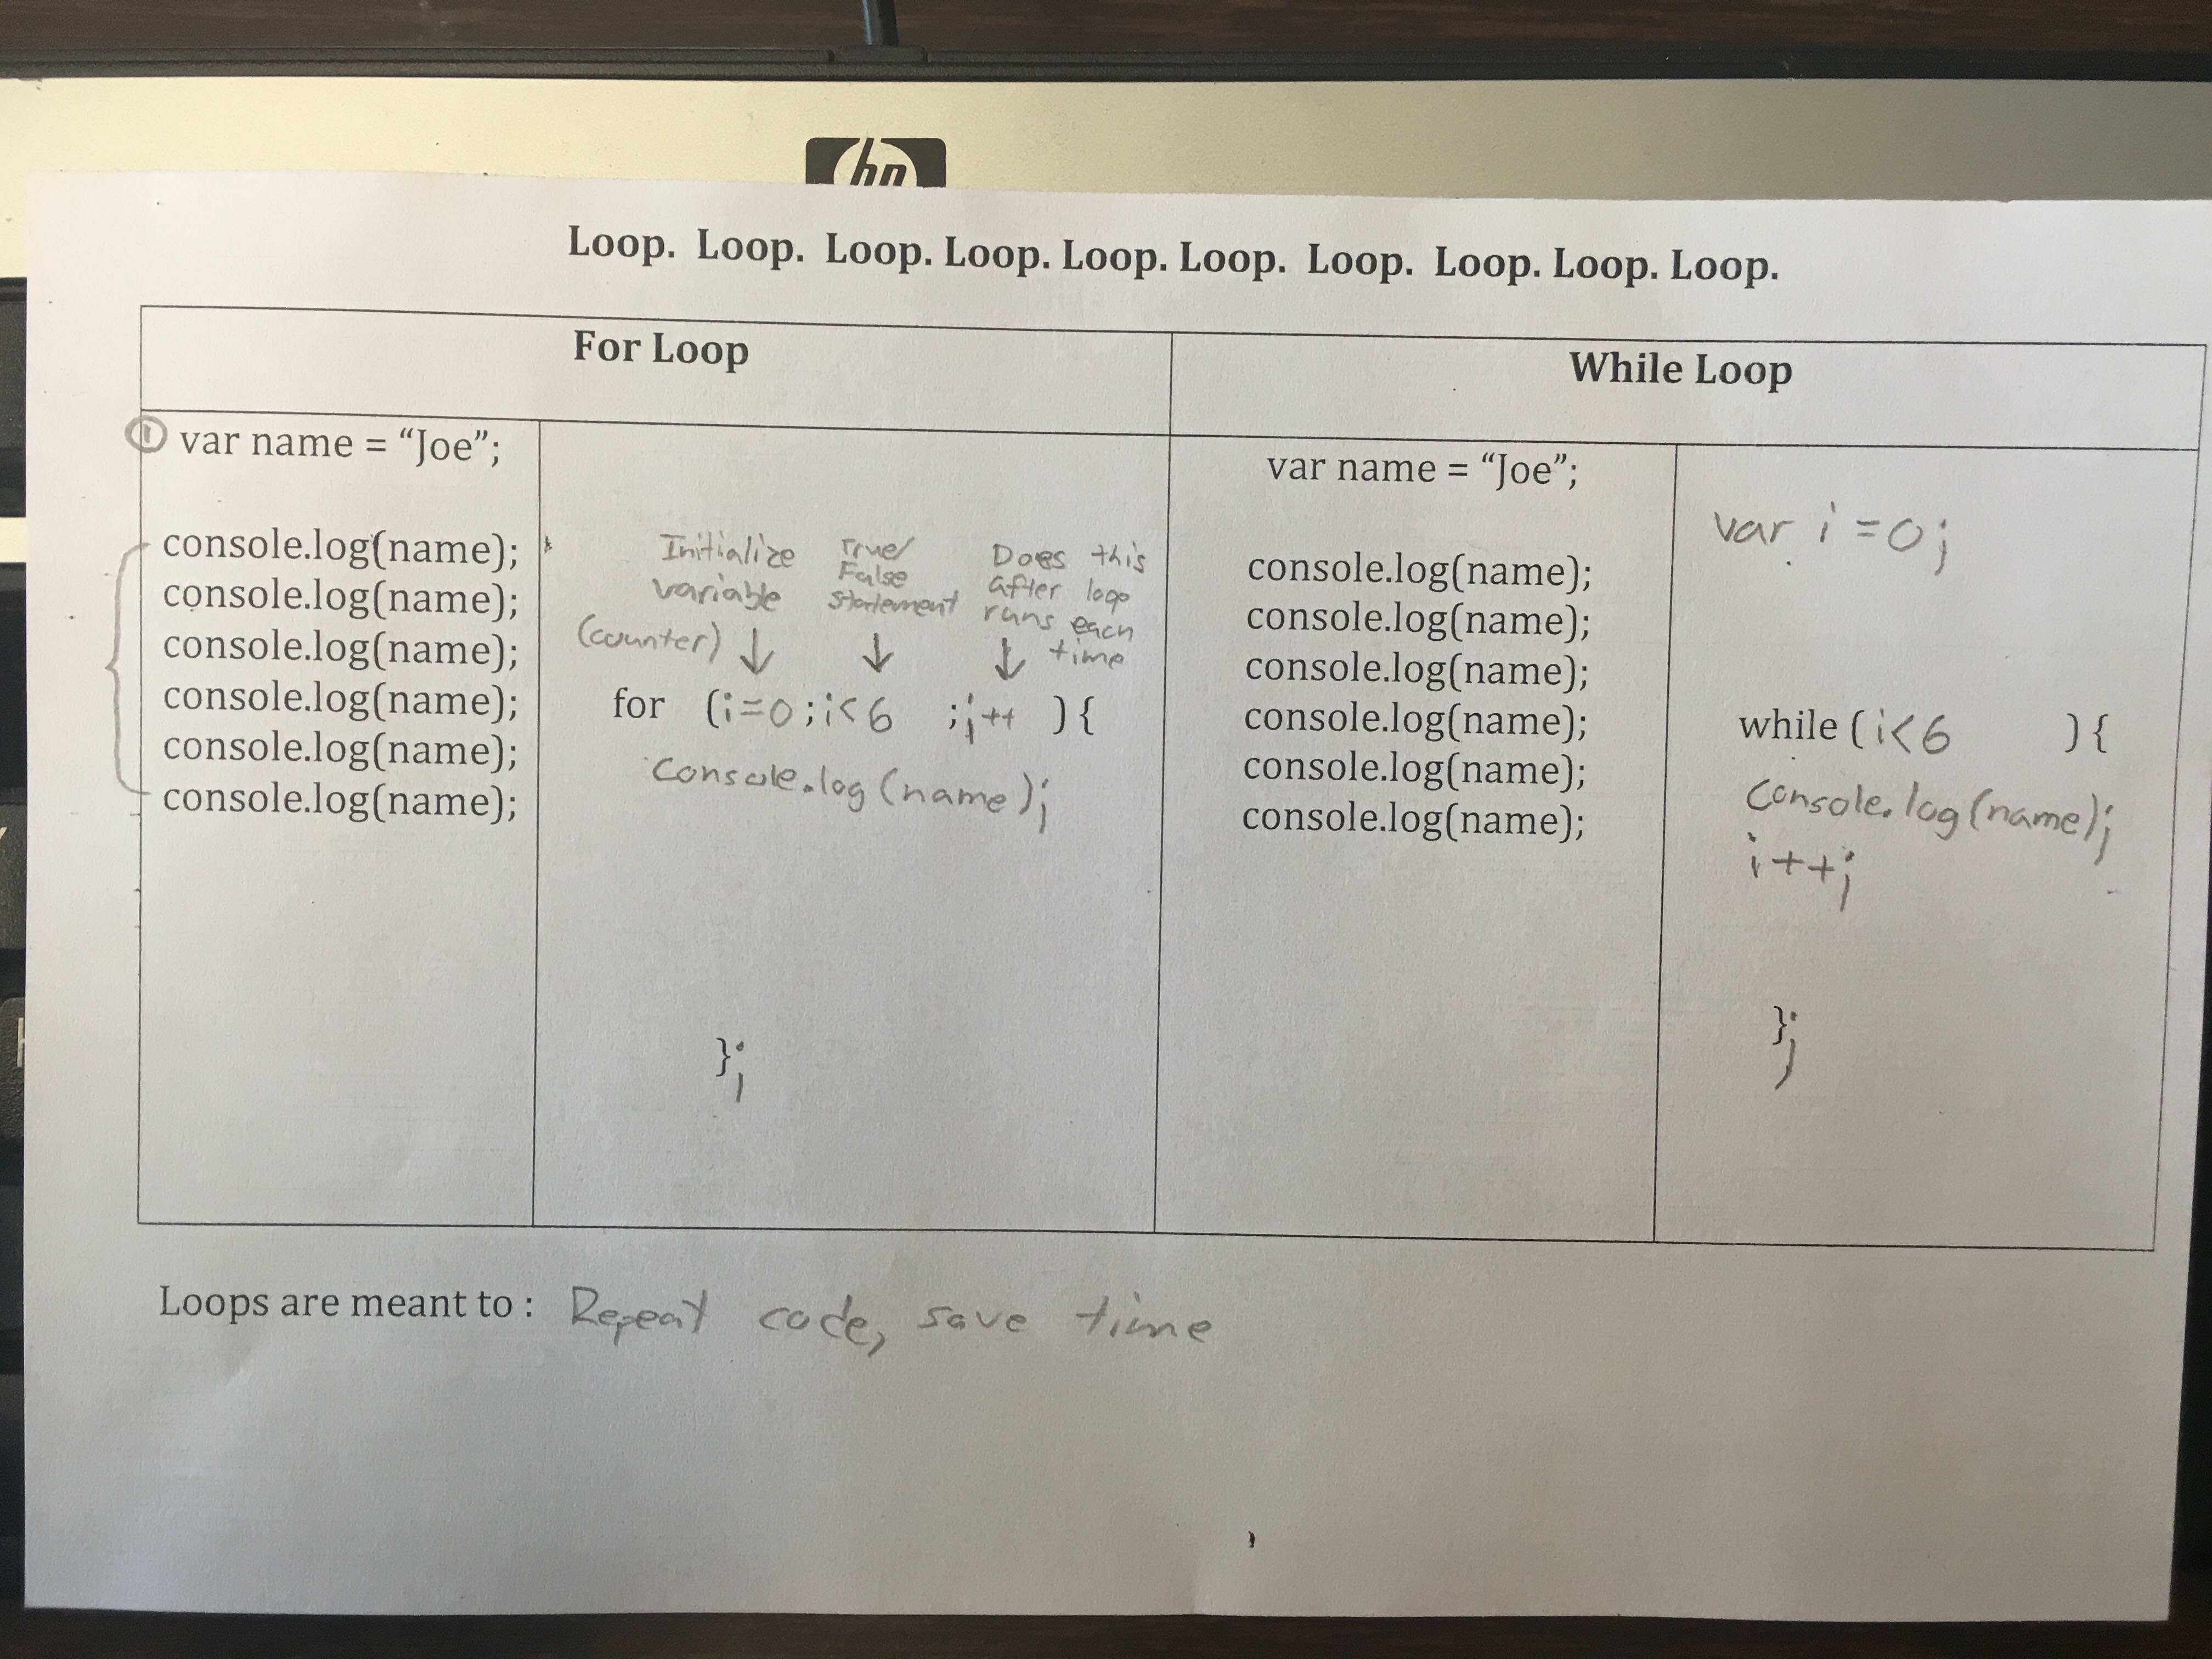 hp
Loop. Loop. Loop. Loop. Loop. Loop. Loop. Loop. Loop. Loop.
For Loop
① var name = “Joe”;
console.log(name);
console.log(name);
console.log(name);
console.log(name);
console.log(name);
console.log(name);
Initialize
variable
(counter) ↓
True/
False
statement
↓
Does this
after loop
runs each
↓ time
for (i=0;i<6 ;i++ ){
console.log(name);
};
While Loop
var name = “Joe”;
console.log(name);
console.log(name);
console.log(name);
console.log(name);
console.log(name);
console.log(name);
var i=0;
while (i<6 ){
console.log(name);
i++;
};
Loops are meant to : Repeat code, save time